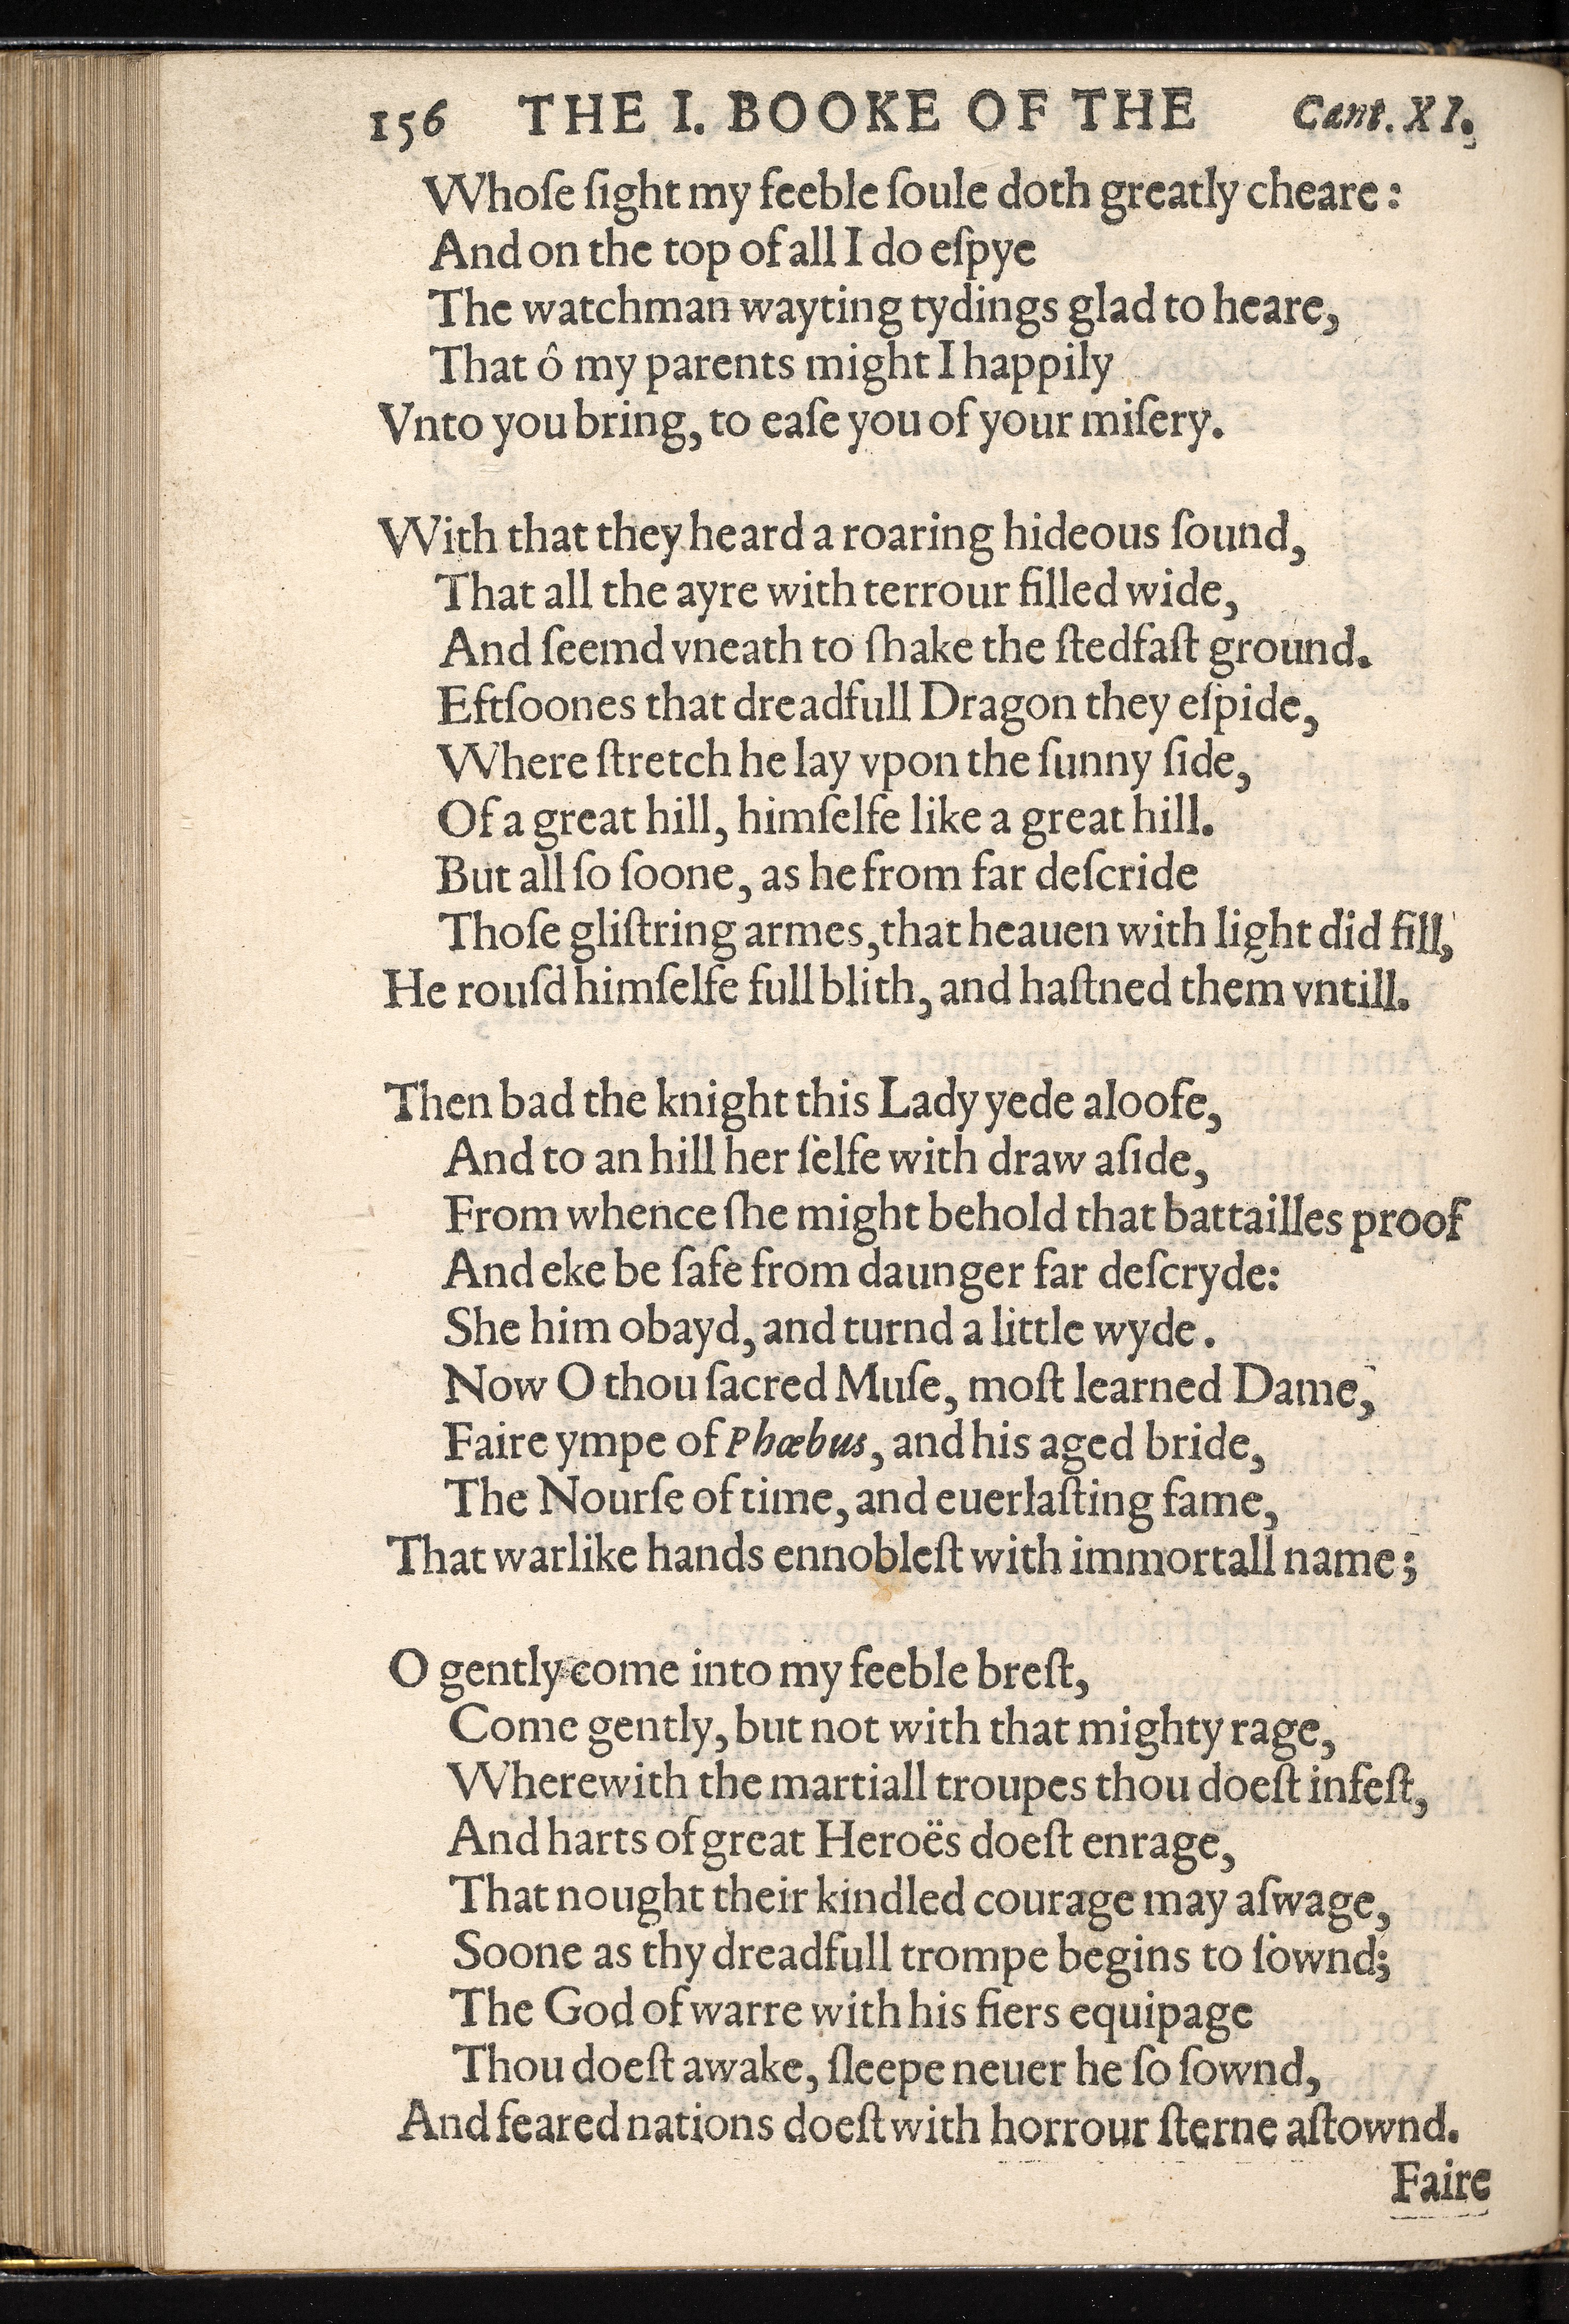 156 THE I. BOOKE OF THE Cant. XI.
Whoſe ſight my feeble ſoule doth greatly cheare:
And on the top of all I do eſpye
The watchman wayting tydings glad to heare,
That ô my parents might I happily
Vnto you bring, to eaſe you of your miſery.

With that they heard a roaring hideous ſound,
That all the ayre with terrour filled wide,
And ſeemd vneath to ſhake the ſtedfaſt ground.
Eftſoones that dreadfull Dragon they eſpide,
Where ſtretch he lay vpon the ſunny ſide,
Of a great hill, himſelfe like a great hill.
But all ſo ſoone, as he from far deſcride
Thoſe gliſtring armes, that heauen with light did fill,
He rouſd himſelfe full blith, and haſtned them vntill.

Then bad the knight this Lady yede aloofe,
And to an hill her ſelfe with draw aſide,
From whence ſhe might behold that battailles proof
And eke be ſafe from daunger far deſcryde:
She him obayd, and turnd a little wyde.
Now O thou ſacred Muſe, moſt learned Dame,
Faire ympe of Phœbus, and his aged bride,
The Nourſe of time, and euerlaſting fame,
That warlike hands ennobleſt with immortall name;

O gently come into my feeble breſt,
Come gently, but not with that mighty rage,
Wherewith the martiall troupes thou doeſt infeſt,
And harts of great Heroës doeſt enrage,
That nought their kindled courage may aſwage,
Soone as thy dreadfull trompe begins to ſownd;
The God of warre with his fiers equipage
Thou doeſt awake, ſleepe neuer he ſo ſownd,
And feared nations doeſt with horrour ſterne aſtownd.
Faire